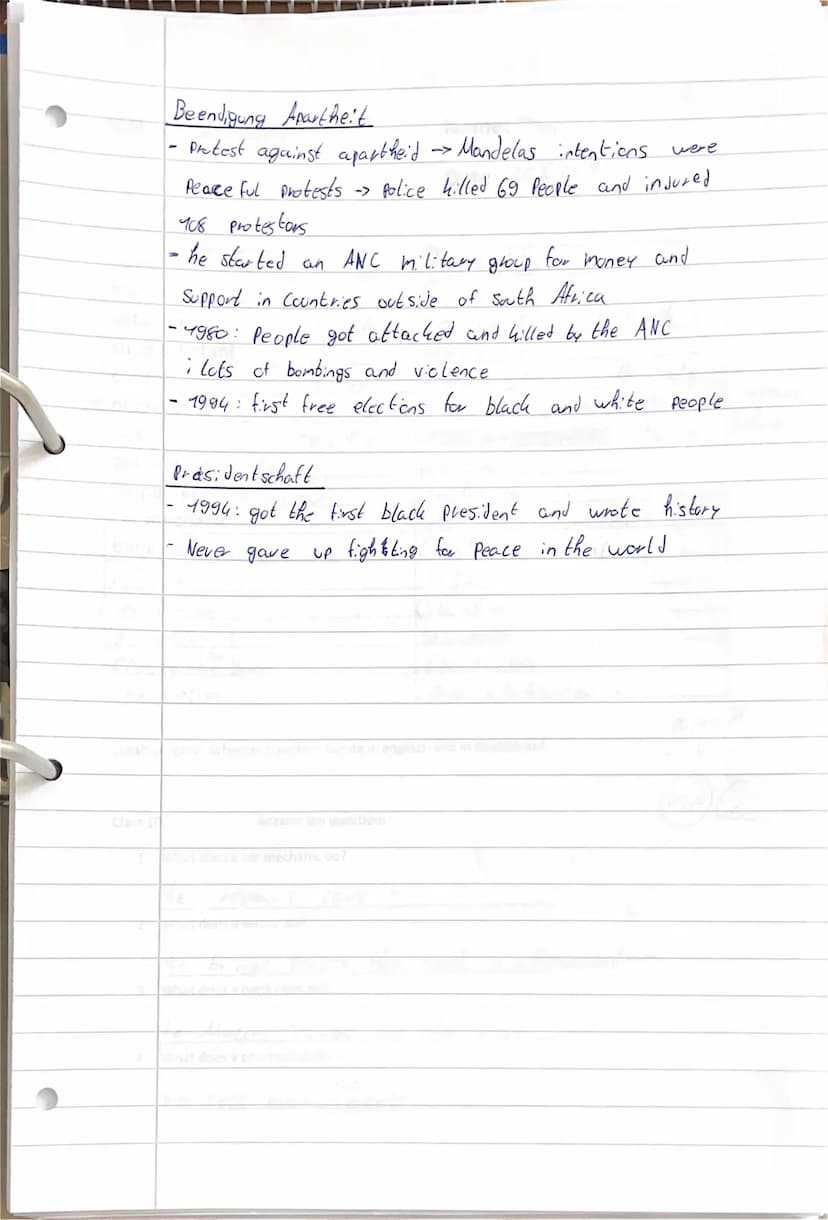 Beendigung Apartheit
- Protest against apartheid → Mandelas intentions were
peaceful protests → Police killed 69 People and injured
108 protestors
- he started an ANC military group for money and
support in countries outside of South Africa
- 1980: People got attacked and killed by the ANC
; lots of bombings and violence
- 1994: first free elections for black and white people
Präsidentschaft
- 1994: got the first black president and wrote history
- Never gave up fighting for peace in the world
What does a car mechanic do?